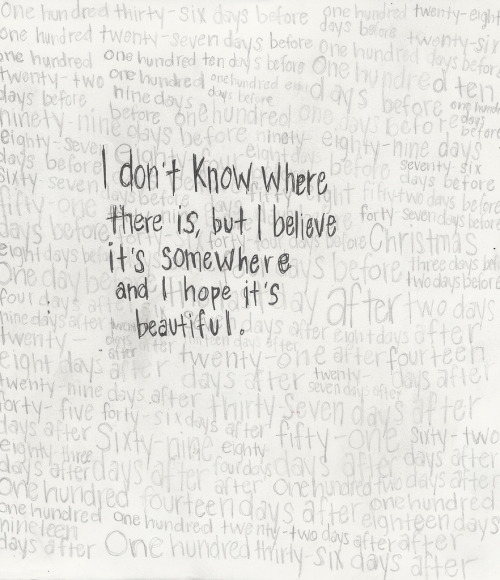 One hundred thirty-six days before one hundred twenty-eight
days before
one hundred twenty-seven days before twenty-six
one hundred one hundred ten days before one hundred days before
twenty-two one hundred one hundred One hundred ten
days before nine days days before days before one hundred
before one hundred one days before days before
ninety-nine days before ninety-eighty-nine days
eighty-seven days before seventy-six
days before days before
I don't know where
sixty-seven eight two days before
fifty-one forty-seven days before
there is, but I believe
days before forty-four days before Christmas
it's somewhere
eight days before days before three days before
One day before two days before
and I hope it's
four days after day after two days
beautiful.
nine days after after eight days after
twenty days after twenty-one after fourteen
eight days after days after twenty- days after
seven days after
twenty nine days after thirty-seven days after
forty-five forty-six days after
days after sixty-nine fifty-one sixty-two
eighty three eighty
days after days after four days days after days after
after One hundred two days
One hundred fourteen days after one hundred
one hundred one hundred twenty-two days after eighteen days
nineteen after after
days after One hundred thirty-six days after